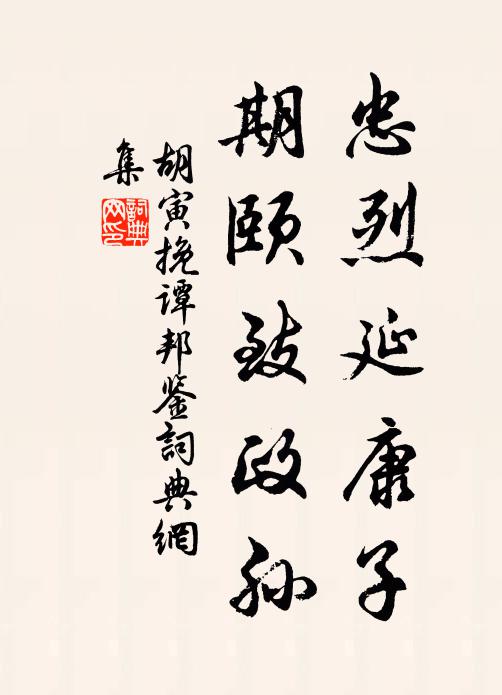 忠烈延康子
期颐致政孙
胡寅挽谭邦鉴詞典網
集
詞典
网印